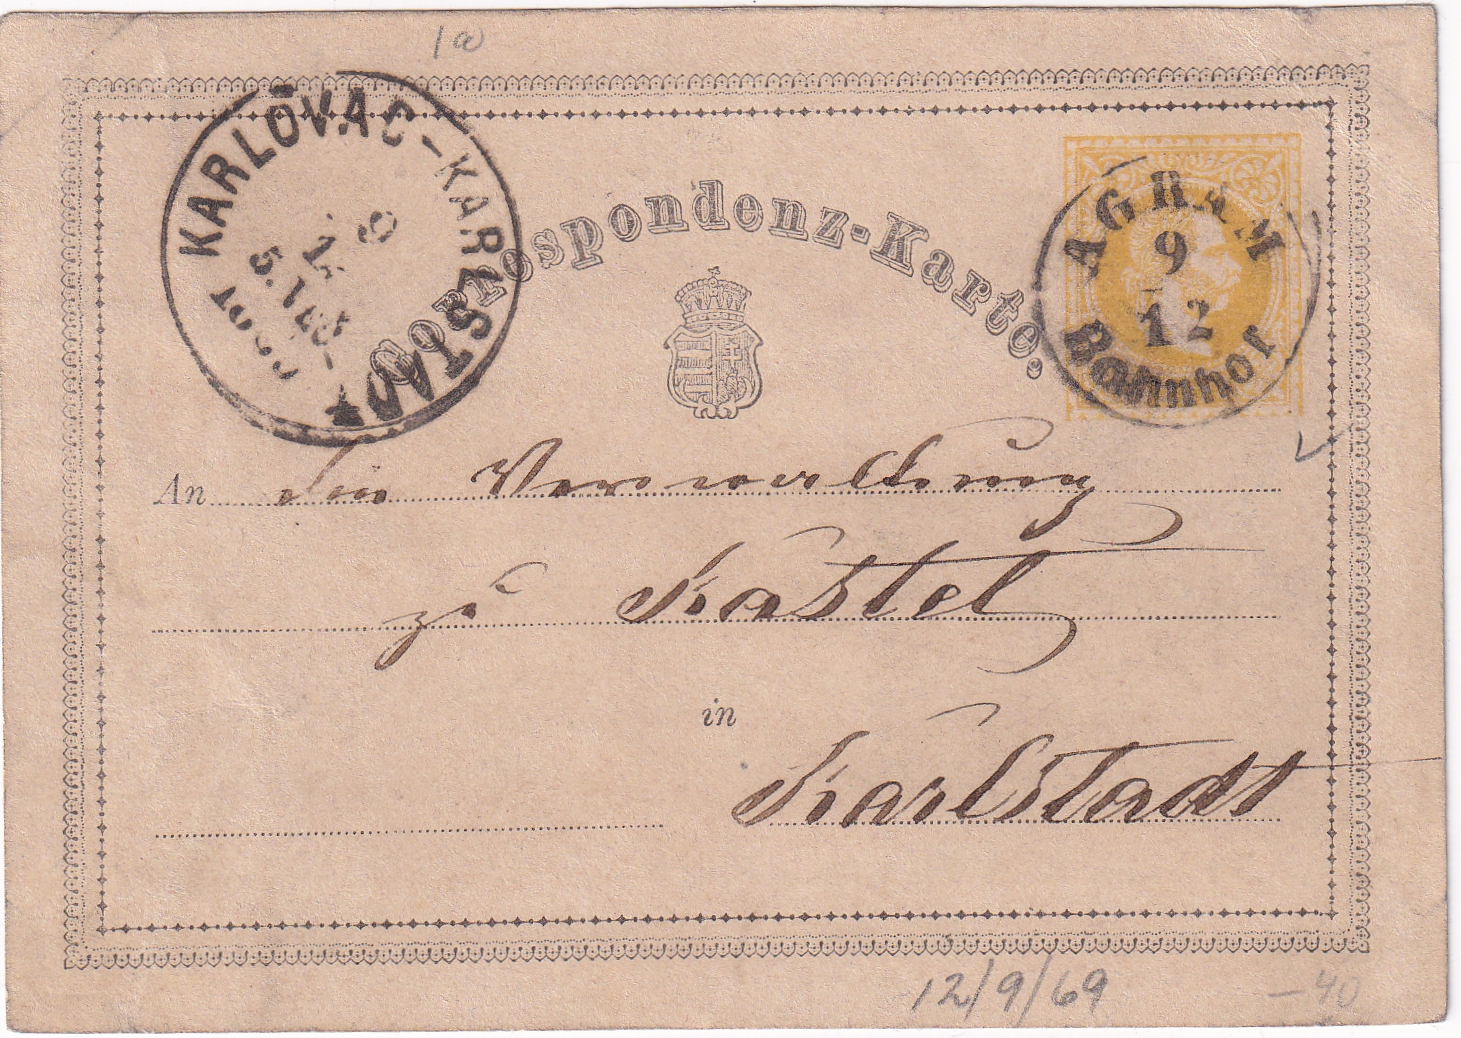 1a
KARLOVAC–KARLSTADT
9
12
5.
Correspondenz-Karte.
AGRAM
9
12
Bahnhof
An die Verwaltung
zu Kastel
in
Karlstadt
12/9/69
–40